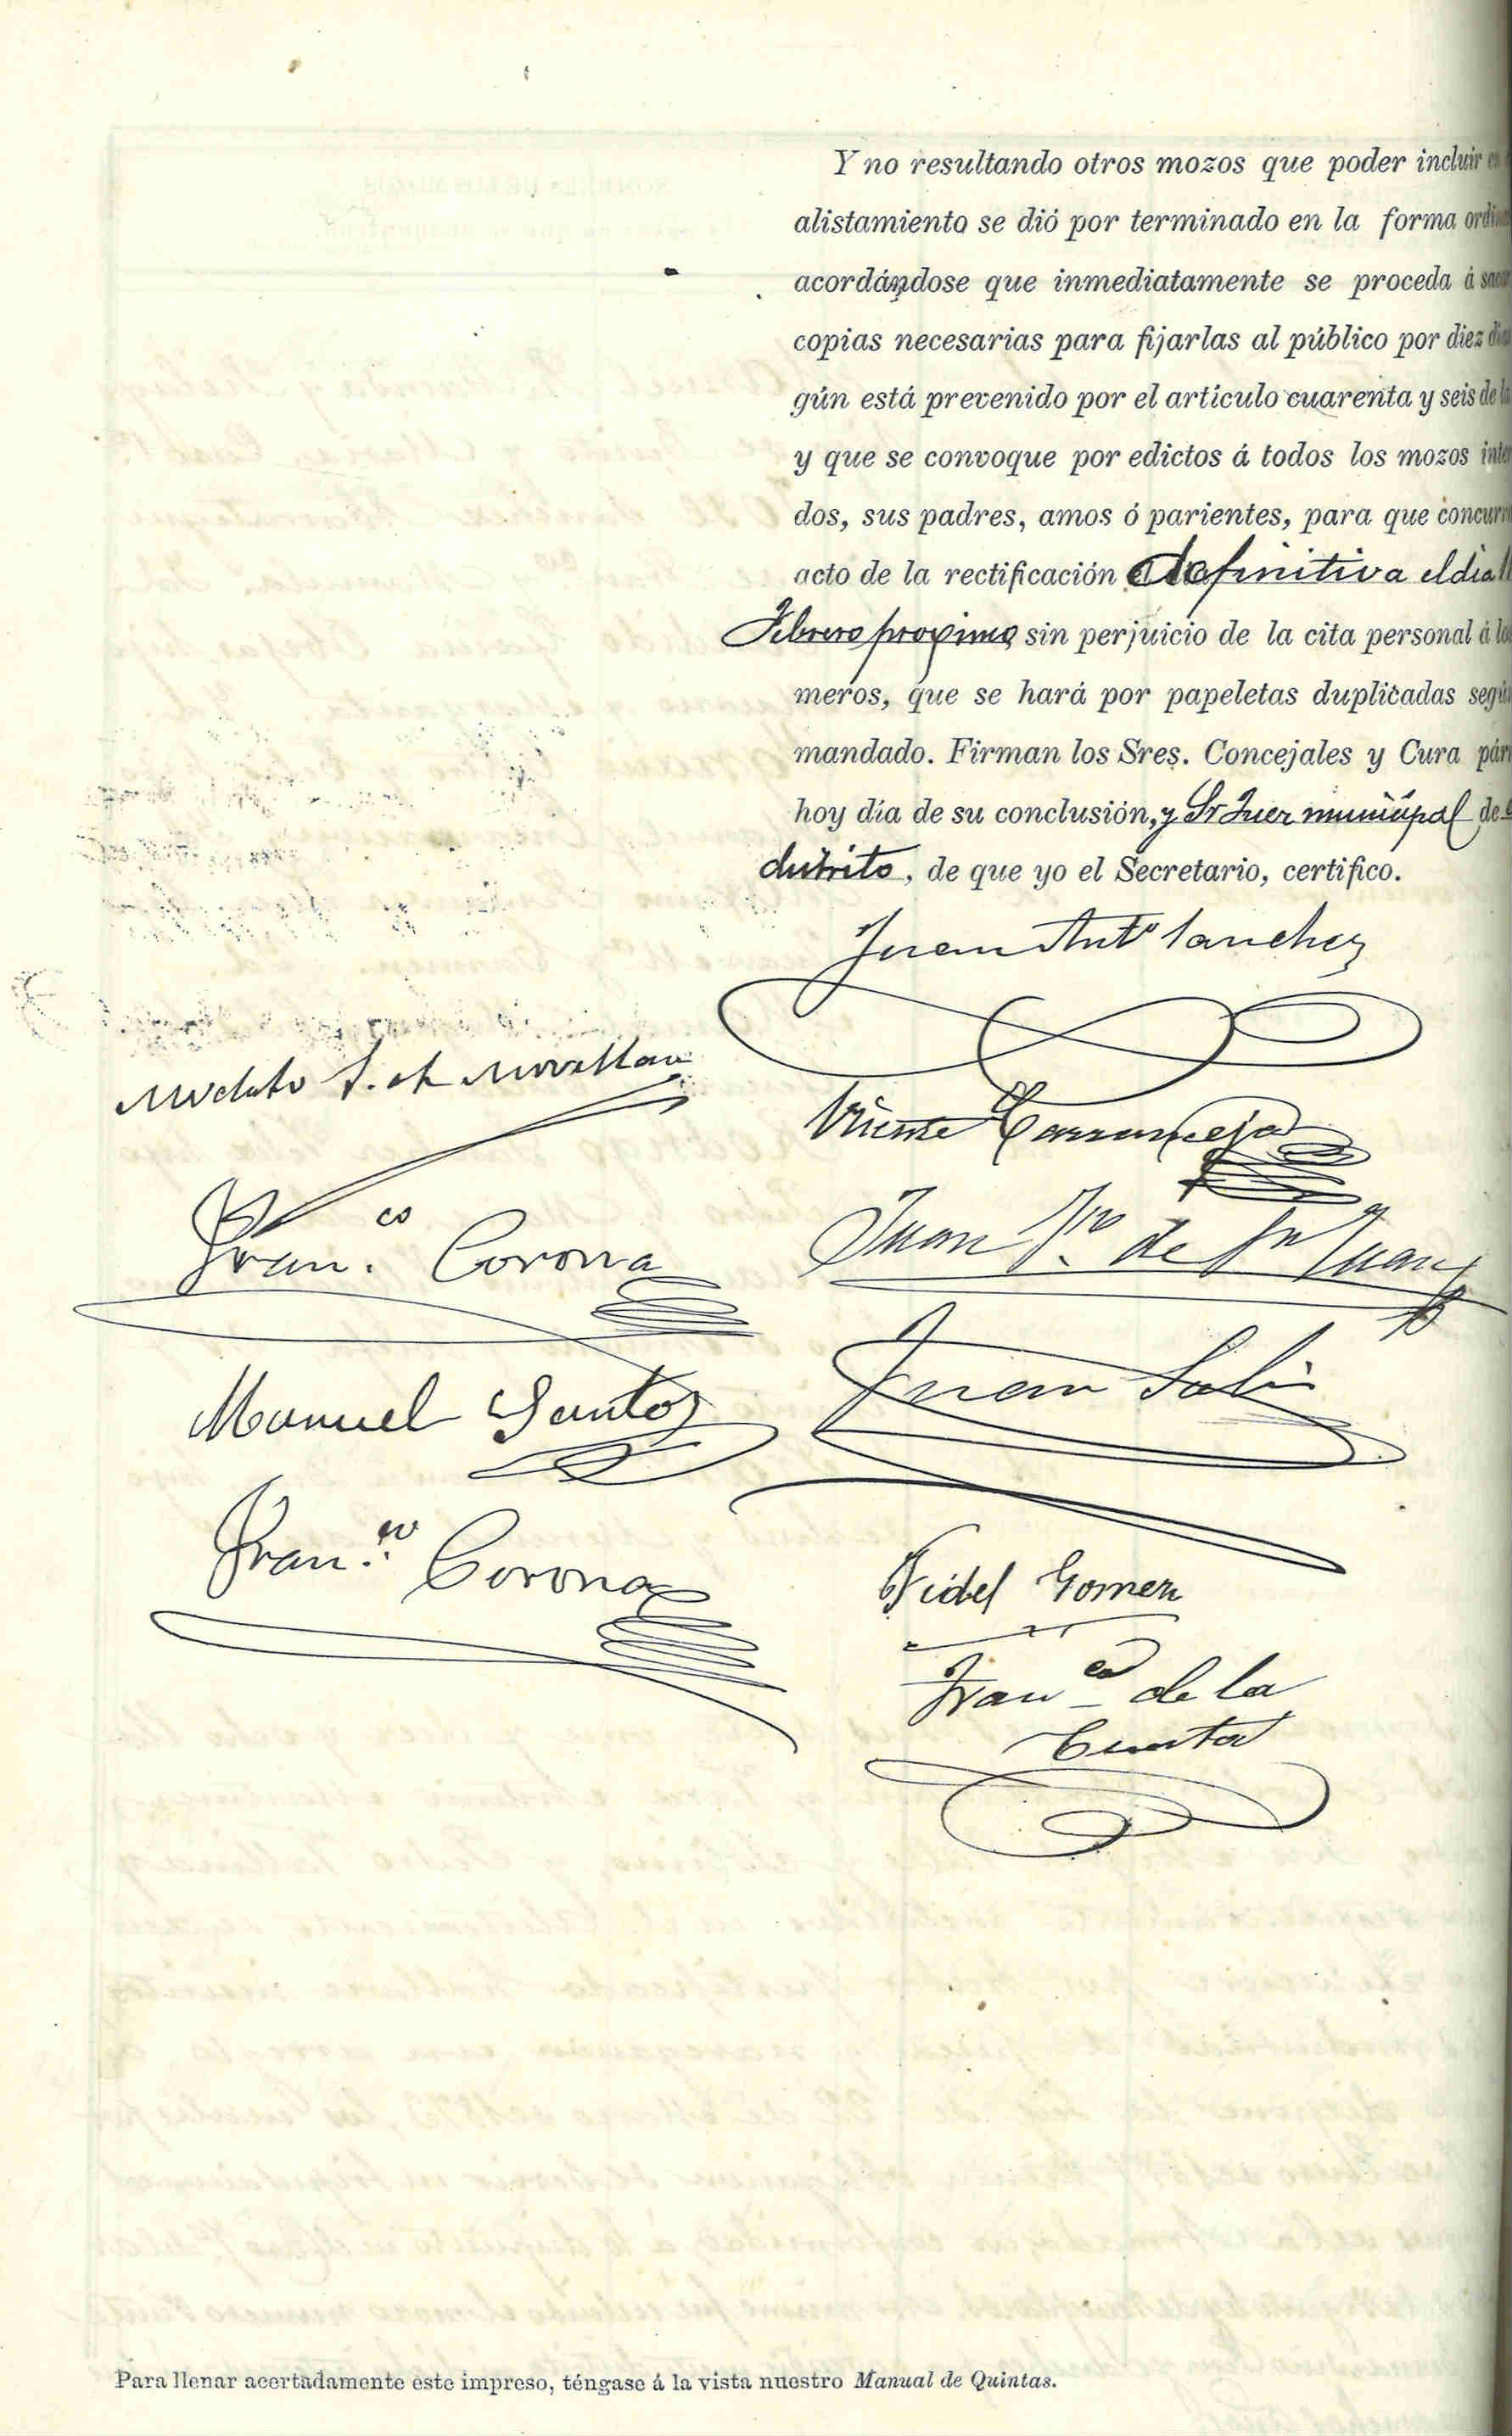 Y no resultando otros mozos que poder incluir en
alistamiento se dió por terminado en la forma ordin
acordándose que inmediatamente se proceda á sacar
copias necesarias para fijarlas al público por diez días
gún está prevenido por el artículo cuarenta y seis de la
y que se convoque por edictos á todos los mozos inter
dos, sus padres, amos ó parientes, para que concurr
acto de la rectificación definitiva el dia
Febrero proximo sin perjuicio de la cita personal á los
meros, que se hará por papeletas duplicadas según
mandado. Firman los Sres. Concejales y Cura párr
hoy día de su conclusión, y Sr Juez municipal de
distrito, de que yo el Secretario, certifico.
Juan Antº Sanchez
Modesto S. de Movellan
Vicente Carranceja
Fran.co Corona
Juan de Sn Juan
Manuel Santos
Juan
Fran.co Corona
Fidel Gomez
Franco de la
Cuesta
Para llenar acertadamente este impreso, téngase á la vista nuestro Manual de Quintas.